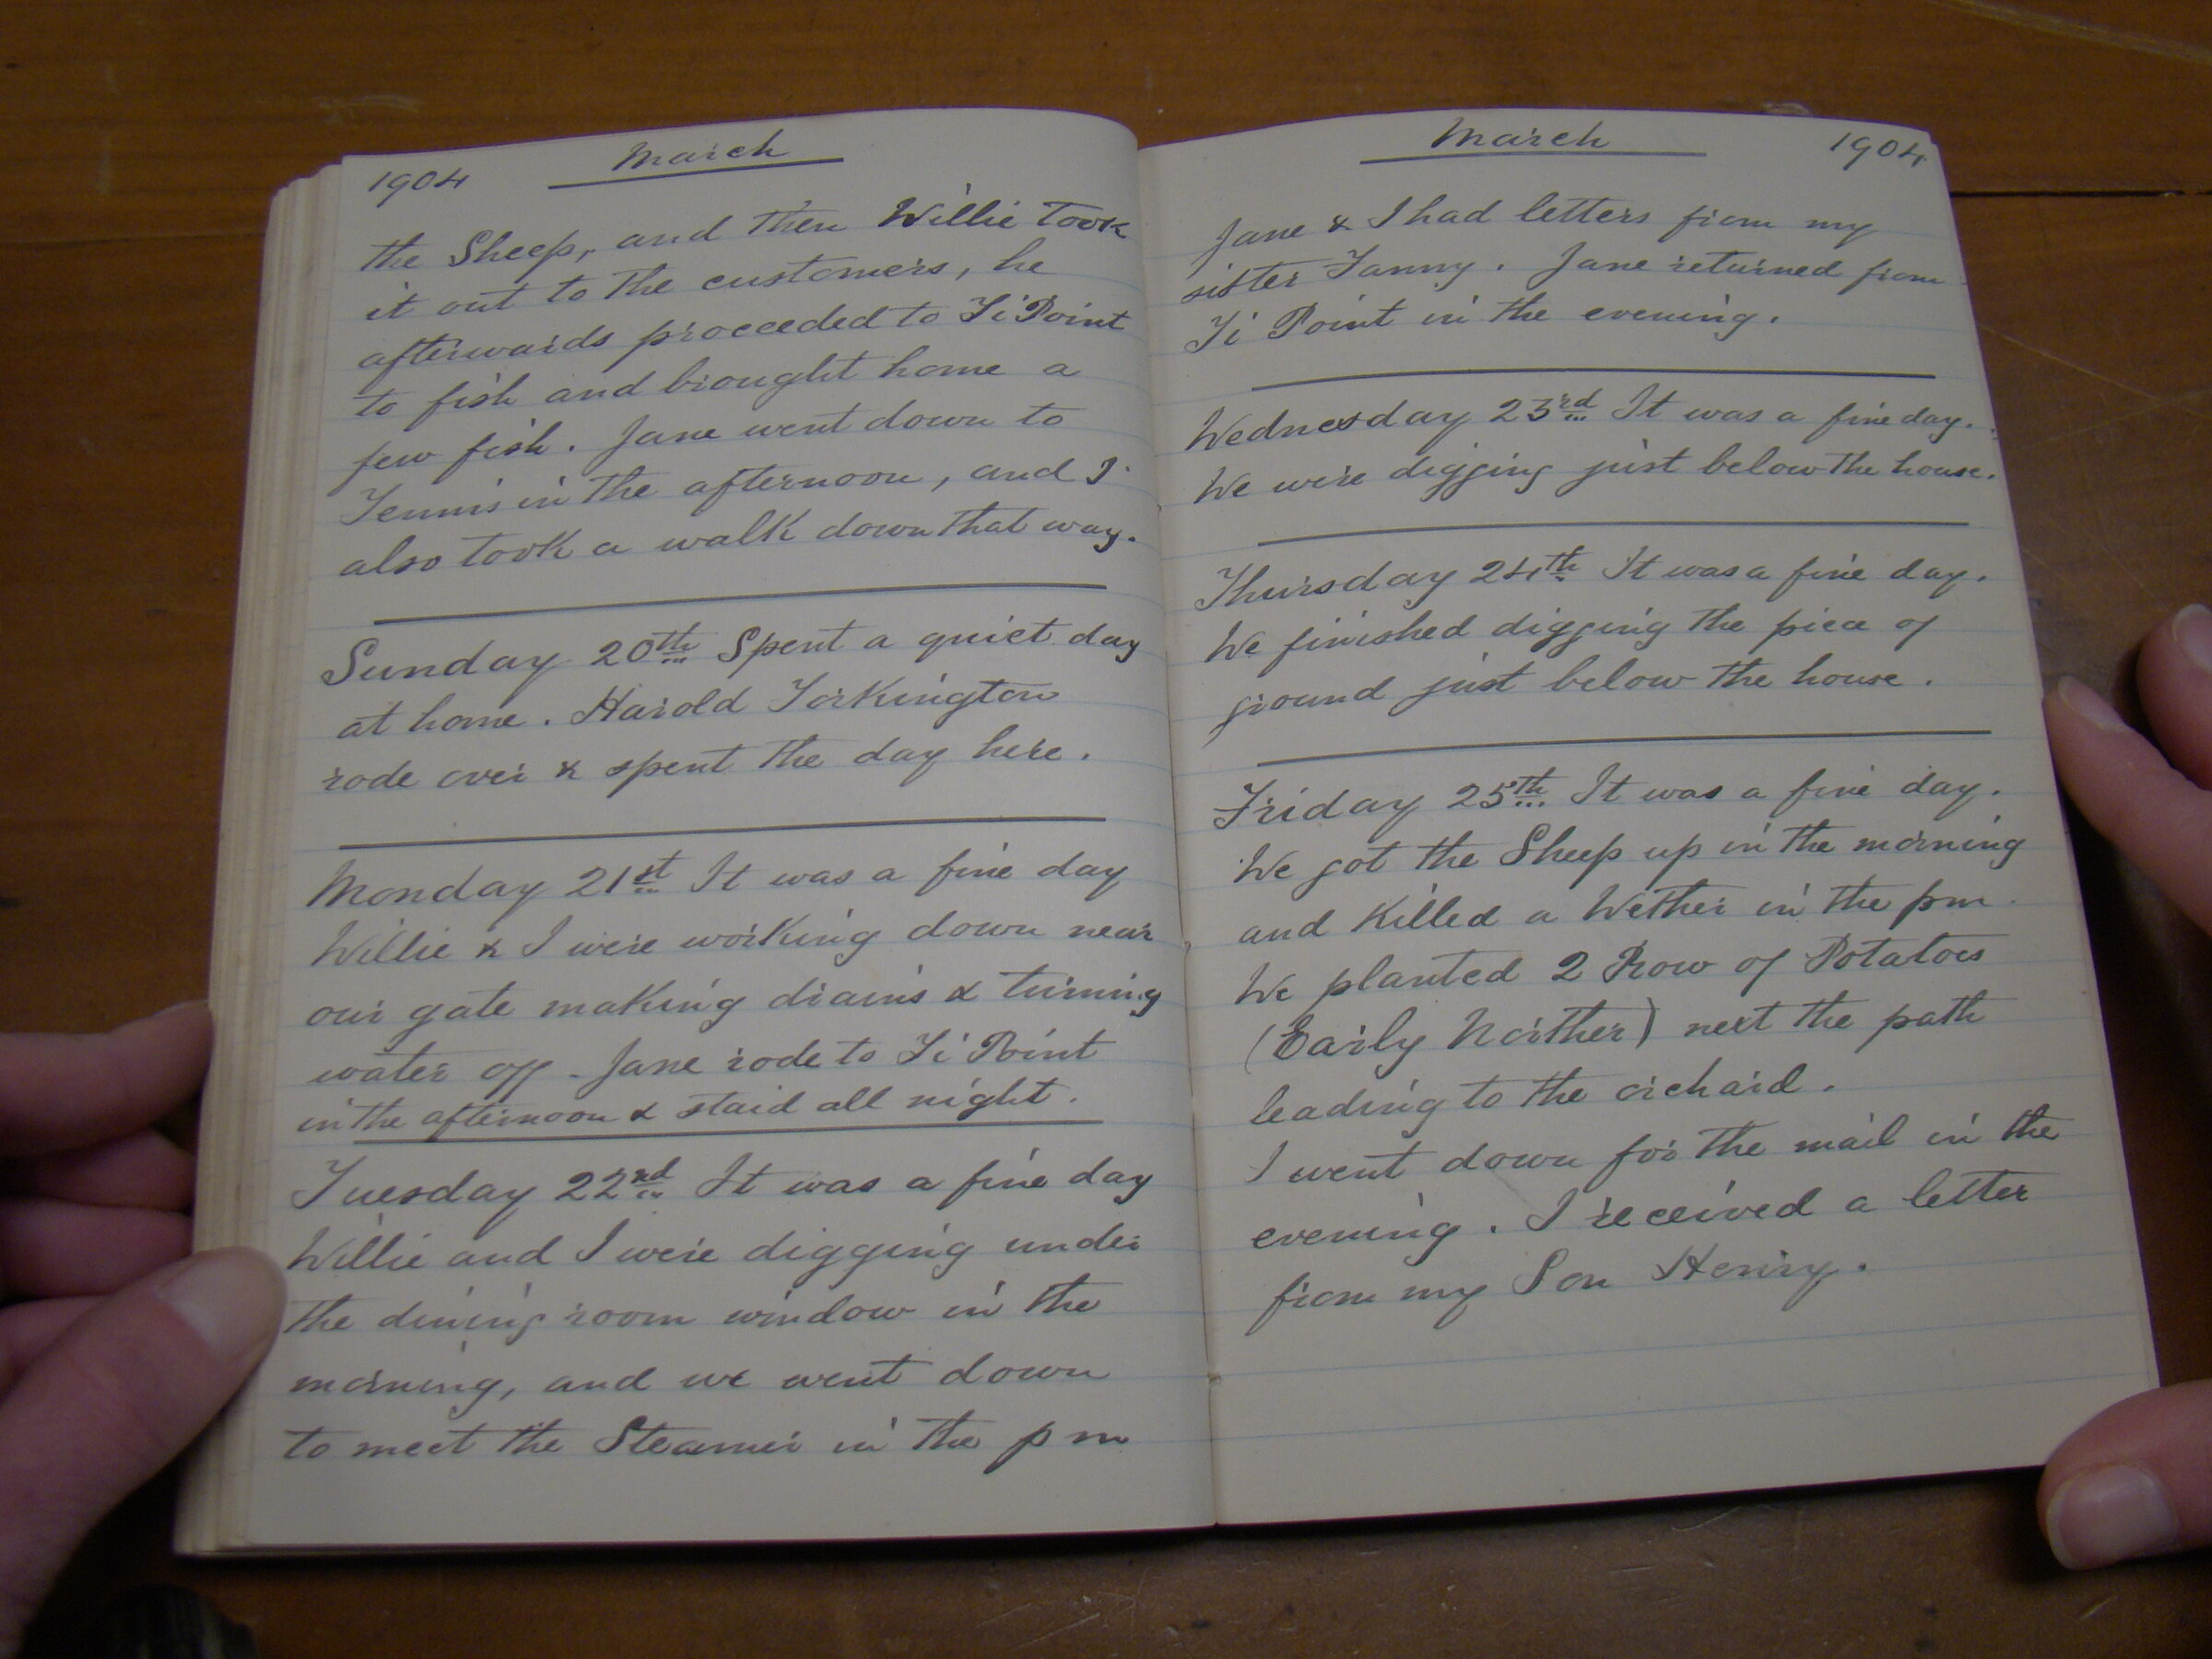 1904 March
the Sheep, and then Willie took
it out to the customers, he
afterwards proceeded to Ti Point
to fish and brought home a
few fish. Jane went down to
Tennis in the afternoon, and I
also took a walk down that way.
Sunday 20th Spent a quiet day
at home. Harold Torkington
rode over & spent the day here.
Monday 21st It was a fine day
Willie & I were working down near
our gate making drains & turning
water off. Jane rode to Ti Point
in the afternoon & staid all night.
Tuesday 22nd It was a fine day
Willie and I were digging under
the dining room window in the
morning, and we went down
to meet the Steamer in the pm
March 1904
Jane & I had letters from my
sister Fanny. Jane returned from
Ti Point in the evening.
Wednesday 23rd It was a fine day.
We were digging just below the house.
Thursday 24th It was a fine day.
We finished digging the piece of
ground just below the house.
Friday 25th It was a fine day.
We got the Sheep up in the morning
and Killed a Wether in the pm.
We planted 2 Row of Potatoes
(Early Norther) next the path
leading to the orchard.
I went down for the mail in the
evening. I received a letter
from my Son Henry.